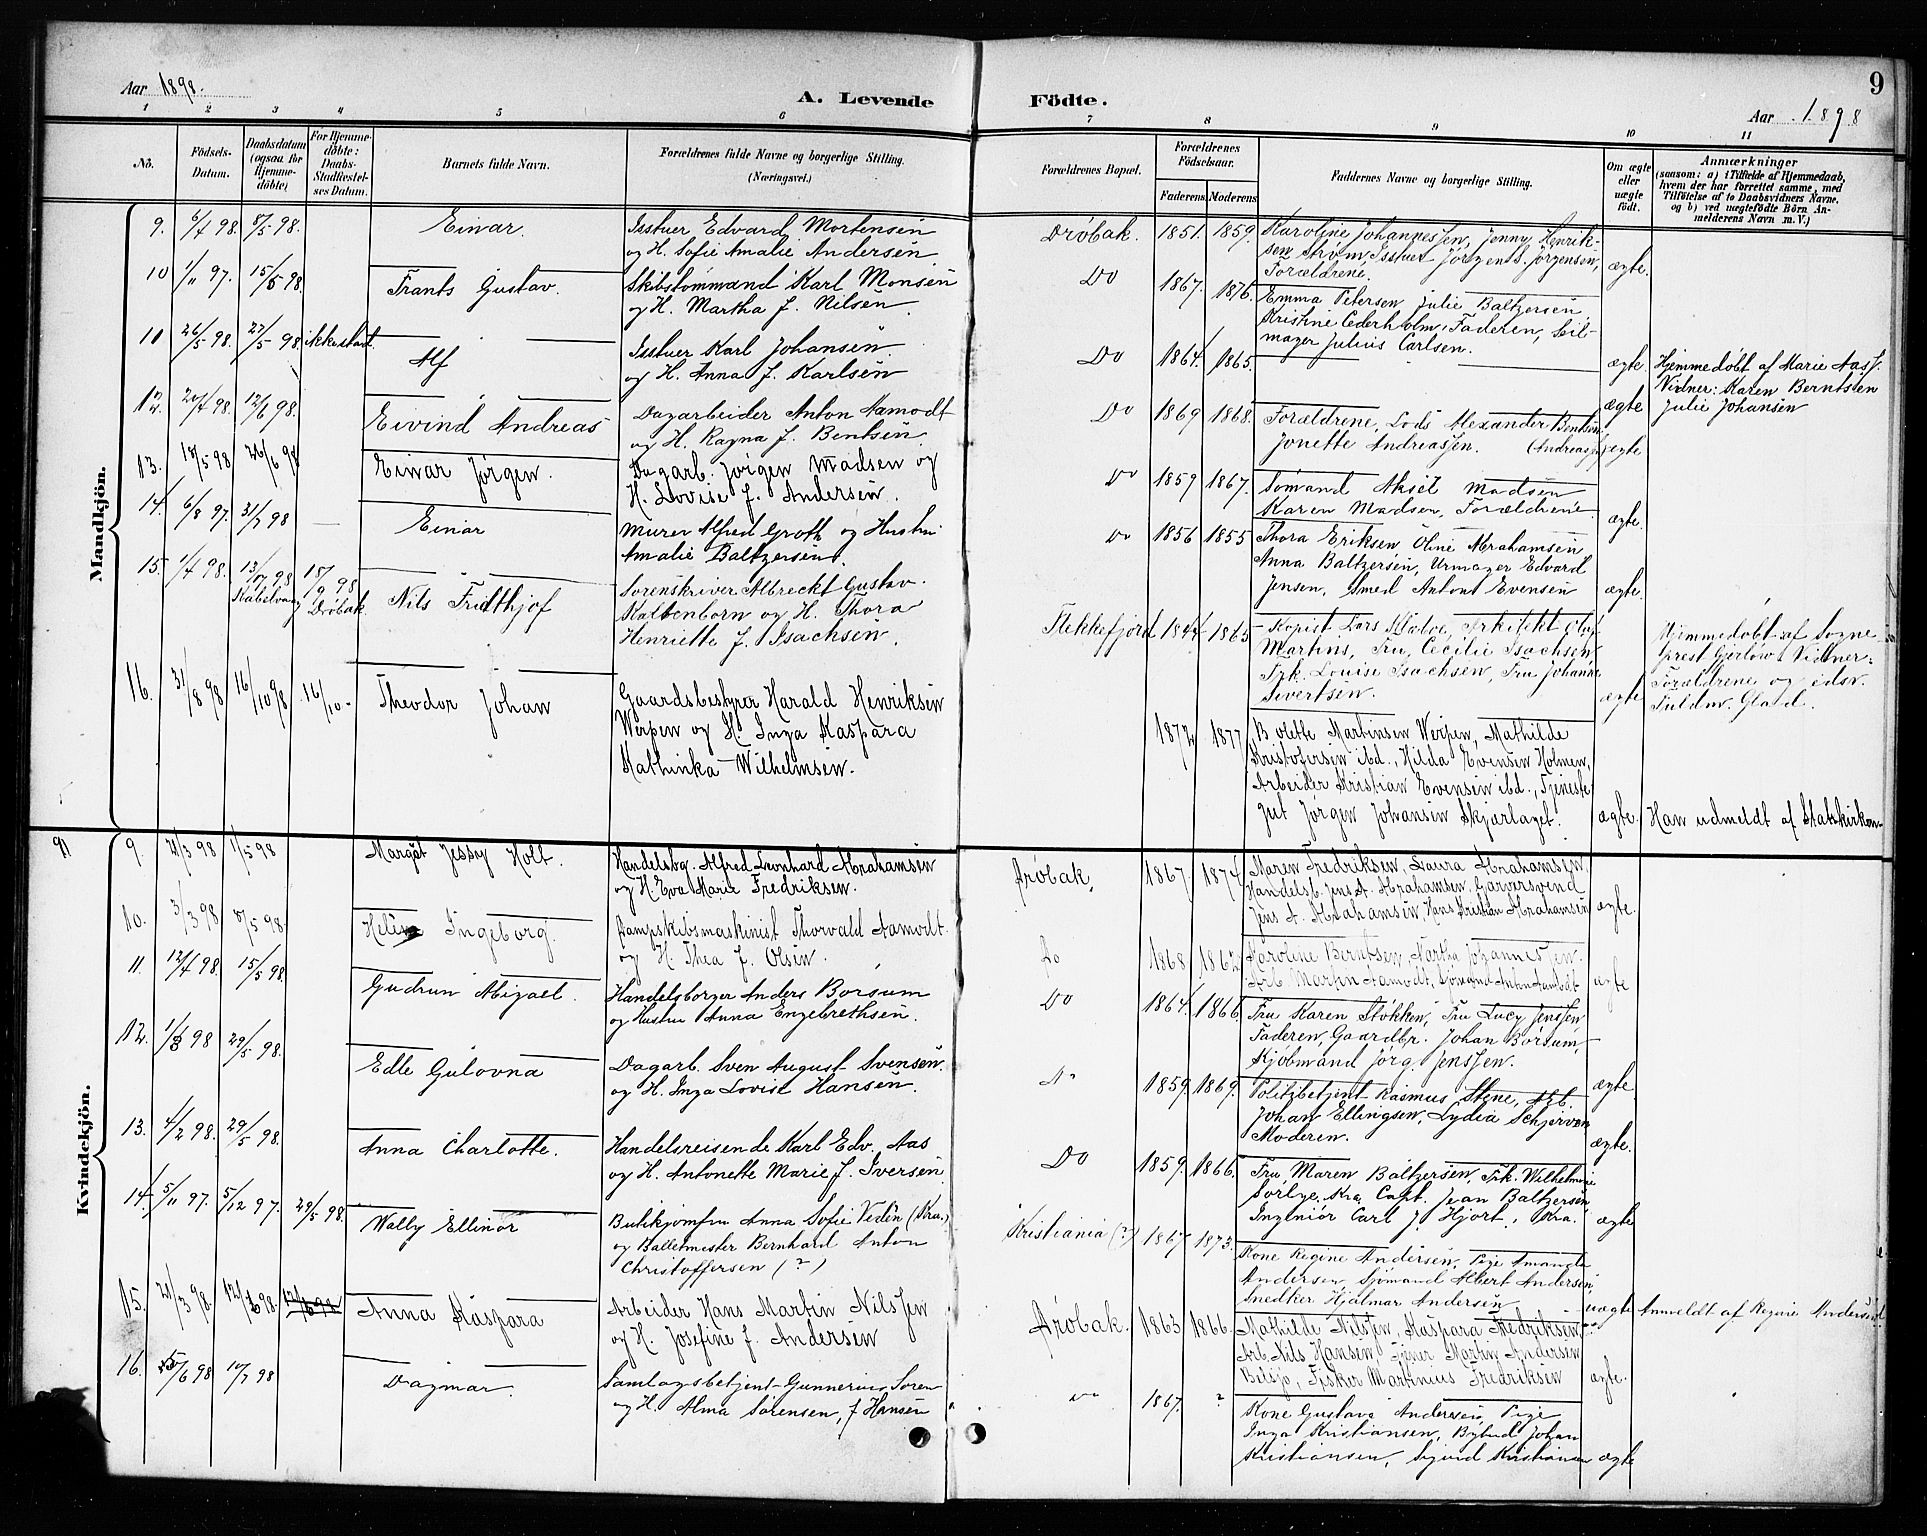 Aar 1898.
A. Levende Födte.
Aar 1898
9
1 2 3 4 5 6 7 8 9 10 11
No.
Födsels-Datum.
Daabsdatum (ogsaa for Hjemmedöbte)
For Hjemmedöbte: Daabs-Stadfæstelses Datum.
Barnets fulde Navn.
Forældrenes fulde Navne og borgerlige Stilling. (Næringsvei.)
Forældrenes Bopæl.
Forældrenes Födselsaar.
Faderens Moderens
Faddernes Navne og borgerlige Stilling.
Om ægte eller uægte födt.
Anmærkninger
(saasom: a) i Tilfælde af Hjemmedaab, hvem der har forrettet samme, med Tilföielse af to Daabsvidners Navne, og b) ved uægtefödte Börn Anmelderens Navn m. V.)
Mandkjön.
9. 6/4 98. 8/5 98. Einar.
Isstuer Edvard Mortensen
og H. Sofie Amalie Andersen.
Drøbak. 1851. 1859.
Karoline Johannessen, Jenny Henrik-
sen Strøm, Isstuer Jörgen S. Jörgensen,
Forældrene. ægte.
10 1/11 97. 15/5 98. Frants Gustav.
Skibstømmand Karl Monsen
og H. Martha f. Nilsen.
Do 1867. 1876.
Emma Petersen Julie Baltzersen,
Kristine Cederholm, Faderen, Seil-
mager Julius Carlsen. ægte
11 26/5 98. 27/5 98. ikke stad. Alf
Isstuer Karl Johansen.
og H. Anna f. Karlsen
Do 1864. 1865. ægte
Hjemmedøbt af Marie Aas f.
Vidner: Karen Berntsten
Julie Johansen
12. 20/4 98. 12/6 98. Eivind Andreas
Dagarbeider Anton Aamodt
og H. Ragna f. Bentsen.
Do 1869 1868.
Forældrene, Lods Alexander Bentsen,
Jonette Andreassen. ægte
13. 18/5 98 26/6 98 Einar Jørgen.
Dagarb. Jörgen Madsen og
H. Lovise f. Andersen.
Do 1859 1867.
Sømand Aksel Madsen
Karen Madsen, Forældrene. ægte.
14. 6/8 97. 31/7 98 Einar
Murer Alfred Groth og Hustru
Amalie Baltzersen.
Do 1856 1855
Thora Eriksen Oline Abrahamsen
Anna Baltzersen, Urmager Edvard
Jensen, Smed Anton Evensen ægte.
15. 1/4 98. Kabelvaag 98 Drøbak Nils Fridthjof
Sorenskriver Albreckt Gustav
Kaltenborn og H. Thora
Henriette f. Isachsen.
Flekkefjord 1865
Kopist Lars Arkitekt Olaf
Martins, Fru Cecilie Isachsen
Frk. Louise Isachsen, Fru Johanne
Sivertsen. ægte
Hjemmedøbt af Sogne-
prest Gjerløw. Vidner:
Forældrene og edsv.
Fuldm. Glad.
16. 31/8 98 16/10 98 16/10 Theodor Johan
Gaardsbestyrer Harald Henriksen
Werpen og H. Inga Kaspara
Kathinka Wilhelmsen.
1872 1877
Bolette Martinsen Werpen, Mathilde
Kristofersen ibd., Hilda Evensen Holmen,
Arbeider Kristian Evensen ibd., Tjeneste-
gut Jørgen Johansen Skjærlaget. ægte.
Han udmeldt af Statskirken
Kvindekjön.
9. 21/3 98 1/5 98 Margit Jessy Holt.
Handelsbg. Alfred Leonhard Abrahamsen
og H. Eva Marie Fredriksen.
Drøbak, 1867 1874
Maren Fredriksen, Laura Abrahamsen,
Handelsb. Jens A. Abrahamsen, Garversvend
Jens A. Abrahamsen, Hans Kristian Abrahamsen ægte.
10. 3/3 98 8/5 98. Ingeborg.
Dampskibsmaskinist Thorvald Aamodt
og H. Thea f. Olsen.
Do 1868 1862
Karoline Berntsen, Martha Johannesen.
Arb. Martin Aamodt, Sjømand Anton Aamodt ægte
11. 12/4 98. 15/5 98. Gudrun Abigael.
Handelsborger Anders Borsum
og Hustru Anna Engebrethsen.
Do 1864. 1866.
Fru Karen Stökken, Fru Lucy Jenssen
Faderen, Gaardbr. Johan Borsum,
Kjøbmand Jørg. Jenssen. ægte
12. 1/3 98 29/5 98. Edle Gulovna
Dagarb. Sven August Svensen.
og H. Inga Lovise Hansen.
Do 1859. 1869.
Politibetjent Rasmus Stene, Arb.
Johan Ellingsen, Lydia Schjerven
Moderen. ægte.
13. 4/2 98. 29/5 98. Anna Charlotte.
Handelsreisende Karl Edv. Aas
og H. Antonette Marie f. Iversen
Do 1859. 1866.
Fru Maren Baltzersen, Frk. Wilhelmine
Sörbye, Kra, Capt. Jean Baltzersen,
Ingeniör Carl J. Hjort, Kra. ægte
14. 5/11 97. 5/12 97. 29/5 98. Wally Ellinor
Butikjomfru Anna Sofie Vedén (Kra.)
og Balletmester Bernhard Anton
Christoffersen (?)
Kristiania (?) 1867 1873.
Kone Regine Andersen, Pige Amanda
Andersen, Sjömand Albert Andersen,
Snedker Hjalmar Andersen uægte
Anmeldt af Regine Andersen
15. 21/3 98. 12/6 98. 12/6 98 Anna Kaspara
Arbeider Hans Martin Nilssen
og H. Josefine f. Andersen
Drøbak. 1863 1866.
Mathilde Nilssen, Kaspara Fredriksen,
Arb. Nils Hansen, Martin Andersen
Fisker Martinius Fredriksen ægte.
16. 98 10/7 98 Dagmar.
Samlagsbetjent Gunnerius Soren
og H. Alma Sörensen, f. Hansen
Do 1867. ?
Kone Gustava Andersen, Pige
Inga Kristiansen, Bybud Johan
Kristiansen, Sigurd Kristiansen ægte